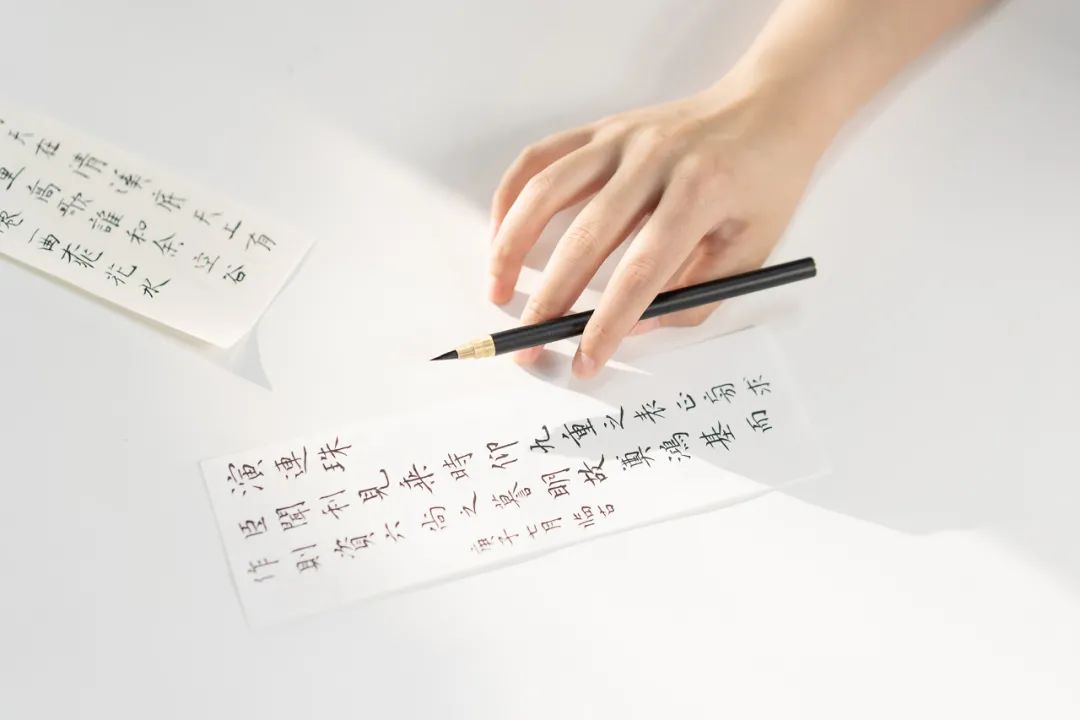 天在清溪底天上有
里高歌誰和余空谷
一曲桃花水
演連珠
臣聞利見乘時仰九重之表正旁求
作則資六尚之耆明故奠鴻基而
庚子七月臨古